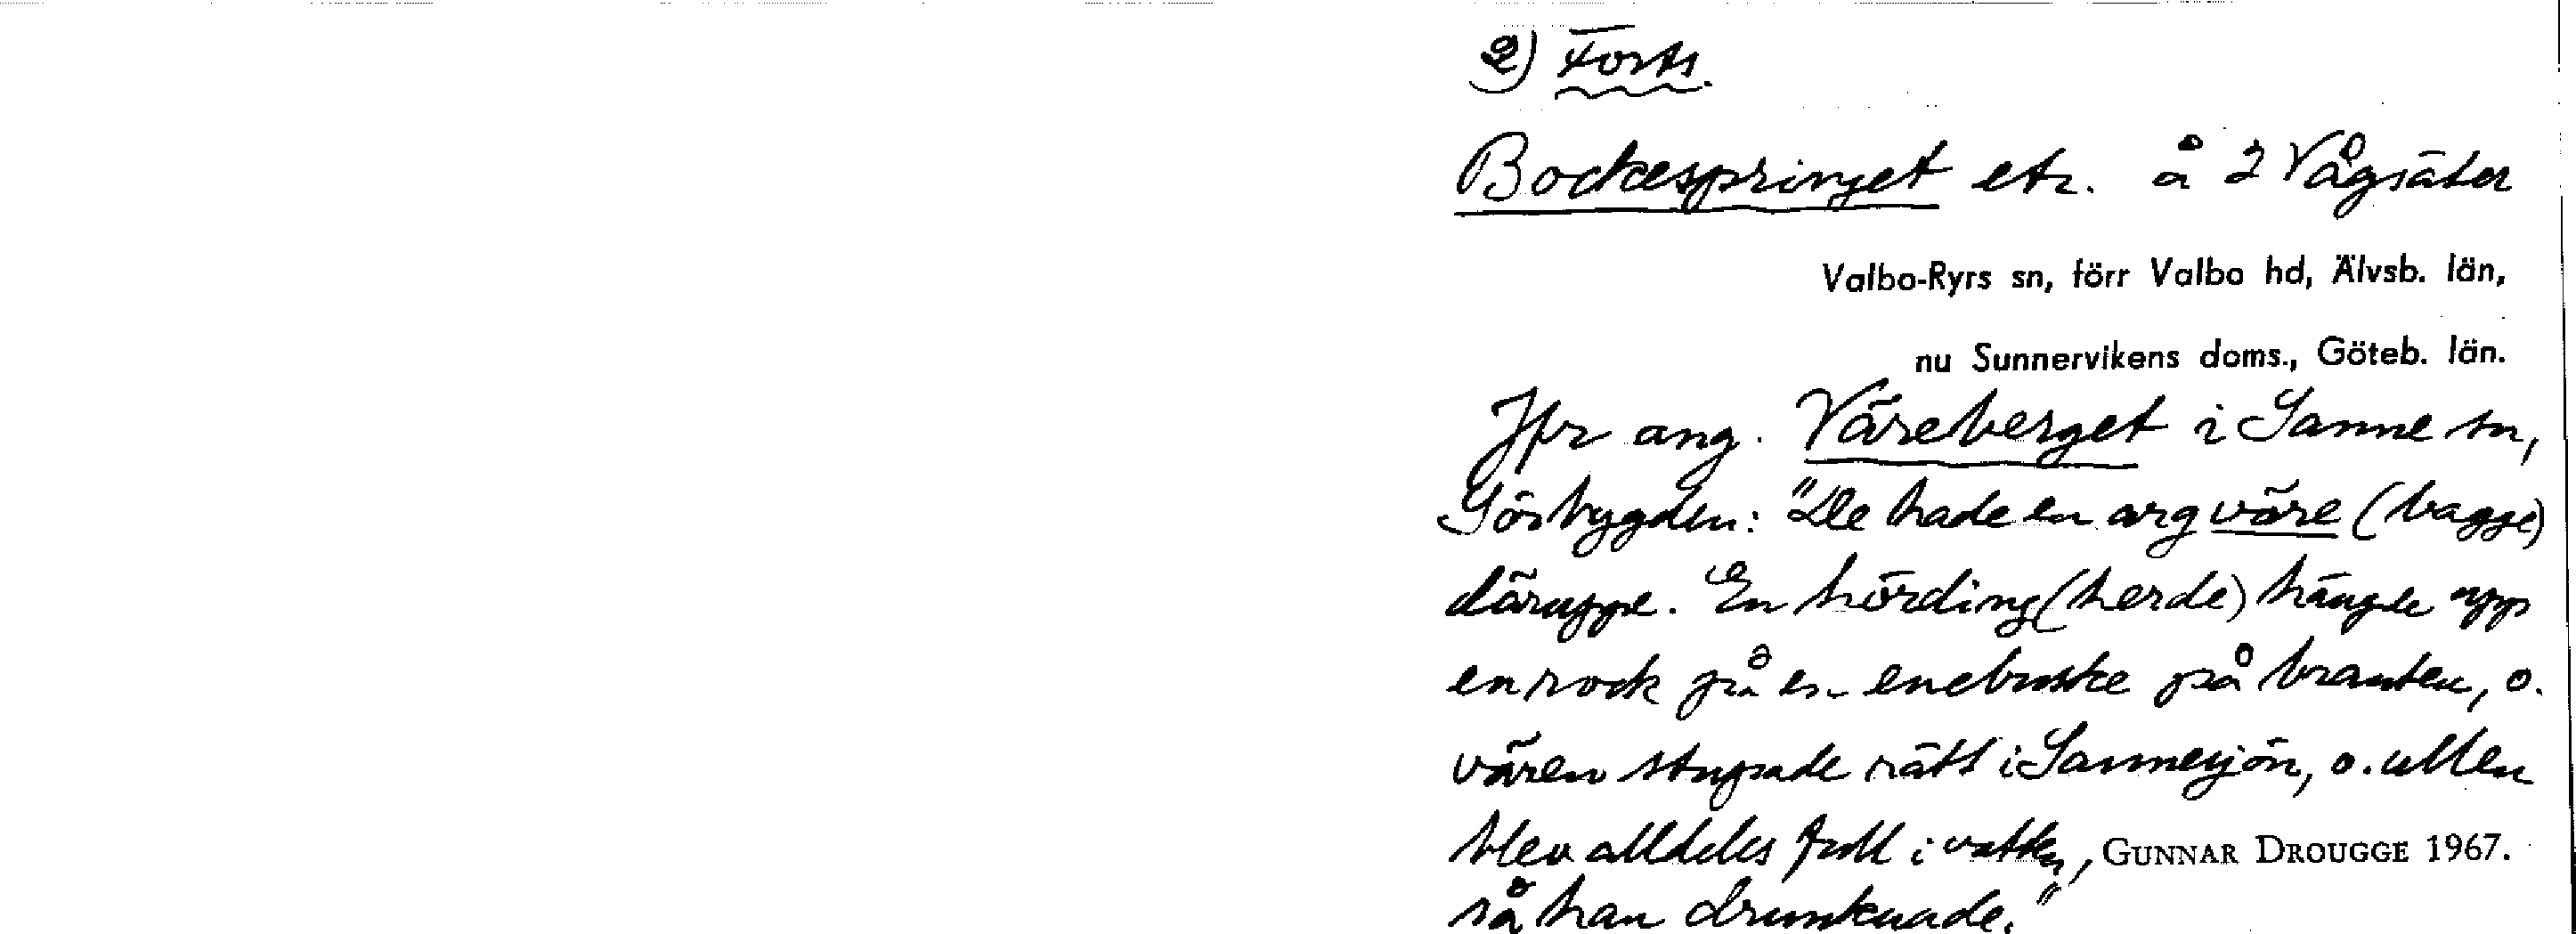 2) Forts.
Bockespringet etc. å 2 Vågsäter
Valbo-Ryrs sn, förr Valbo hd, Älvsb. län,
nu Sunnervikens doms., Göteb. län.
Jfr ang. Väreberget i Sanne sn,
Sörbygden: "De hade en arg väre (bagge)
däruppe. En hörding (herde) hängde upp
en rock på en enebuske på branten, o.
vären stupade rätt i Sannesjön, o. ullen
blev alldeles full i vatten,
GUNNAR DROUGGE 1967.
så han drunknade."